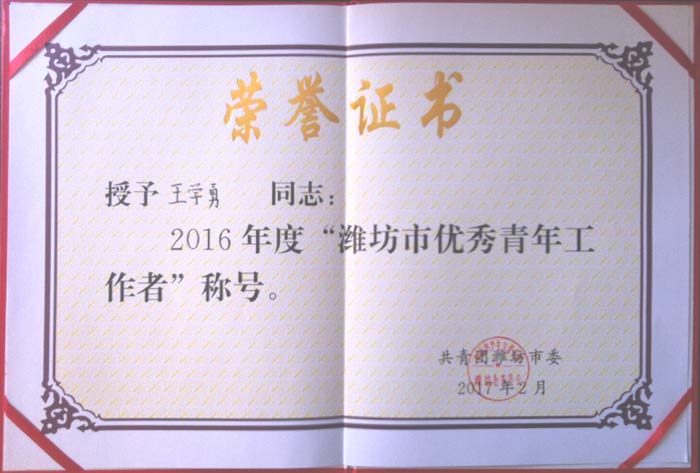 荣誉证书
授予 王学勇 同志：
2016年度“潍坊市优秀青年工
作者”称号。
共青团潍坊市委
2017年2月